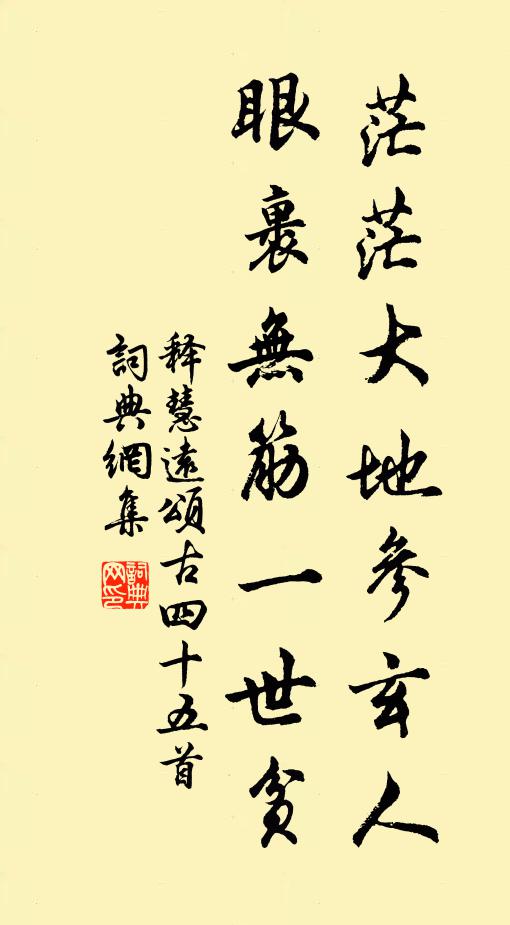 茫茫大地參玄人
眼裏無筋一世貧
釋慧遠頌古四十五首
詞典網集
詞典网印